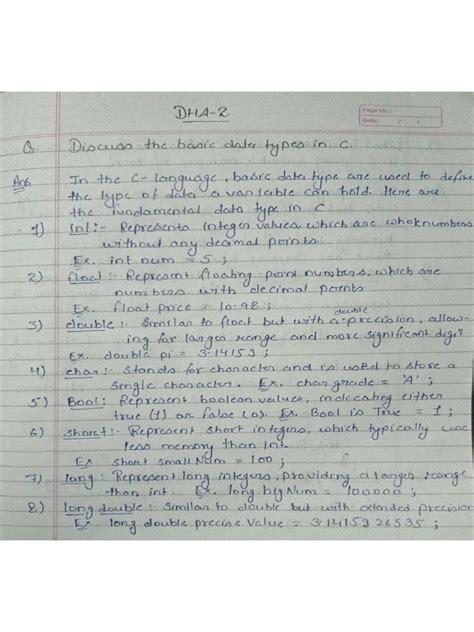 DHA-2
Page No.:
Date: / /
Q. Discuss the basic data types in C.
Ans In the C-language, basic data type are used to define
the type of data a variable can hold. Here are
the fundamental data type in C
1) Int:- Represents integer values which are whole numbers
without any decimal points.
Ex. int num = 5;
2) float:- Represent floating-point numbers, which are
numbers with decimal points
Ex. float price = 10.98;
3) double:- Similar to float but with double precision, allow-
ing for larger range and more significant digit
Ex. double pi = 3.14159;
4) char:- Stands for character and is used to store a
single character. Ex. char grade = 'A';
5) Bool: Represent boolean values, indicating either
true (1) or false (0). Ex. Bool is True = 1;
6) short:- Represent short integers, which typically use
less memory than int.
Ex short small Num = 100;
7) long: Represent long integers, providing a larger range
than int. Ex. long big Num = 100000;
8) long double:- Similar to double but with extended precision
Ex long double precise Value = 3.14159 26535;